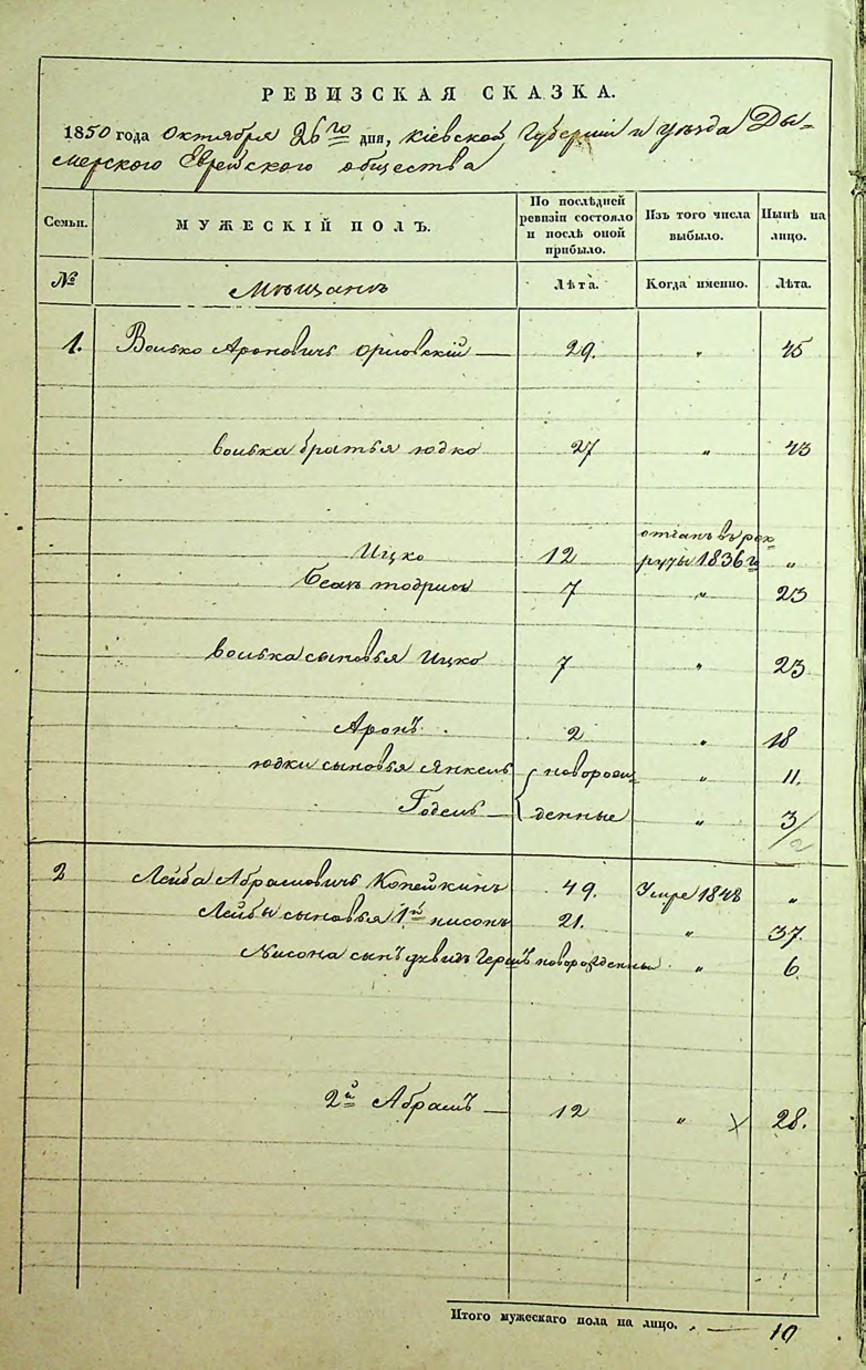 РЕВИЗСКАЯ СКАЗКА.
1850 года Октября 26го дня, Кіевской Губерніи и уезда Ды-
мерского Еврейского общества
Семьи. МУЖЕСКІЙ ПОЛЪ. По послѣдней ревизіи состояло и послѣ оной прибыло. Изъ того числа выбыло. Нынѣ на лицо.
№ Мещанъ Лѣта. Когда именно. Лѣта.
1. Волько Ароновичъ Орловскій — 29. " 45
волька братья юдко 27 " 43
отданъ в рек-
Ицко 12 руты 1836 г "
тодрисъ 7 " 23
волька сыновья Ицко 7 " 23
Аронъ 2 " 18
юдки сыновья Янкель новорож- " 11.
Годель — денные " 3/2
2 Лейба Абрамовичъ Копейкинъ 49. Умре 1848 "
Лейбы сыновья 1й нисонъ 21. " 37.
Нисона сынъ Герш новорожденны " 6
2й Абрамъ — 12 " 28.
Итого мужескаго пола на лицо. — 10